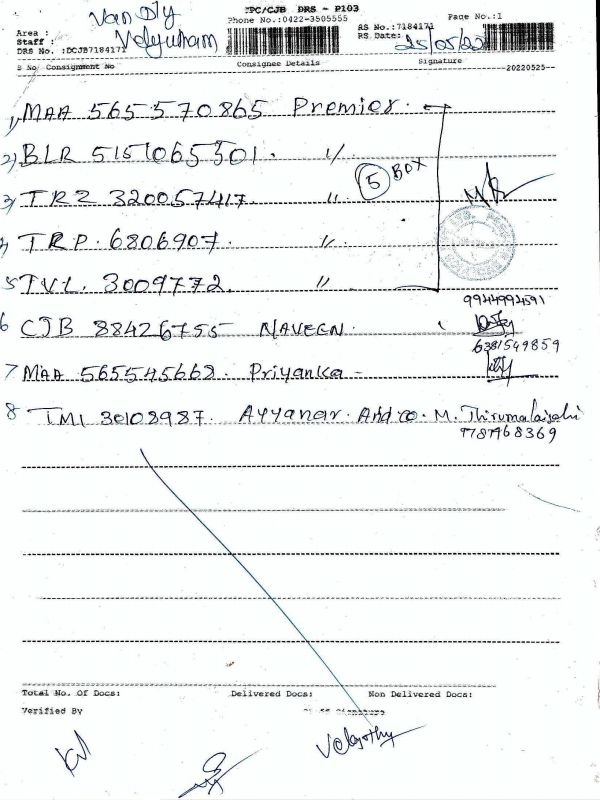 TPC/CJB DRS - P103
Van Dly
Phone No.:0422-3505555
Page No.:1
Area :
RS No.:7184171
Staff :
RS Date:
25/05/22
DRS No. :DCJB7184171
S No Consignment No Consignee Details Signature 20220525
1) MAA 565570865 Premier.
2) BLR 5151065501. "
5 BOX
3) TRZ 320057417. "
4) TRP. 6806907. "
5 TVL. 3009772. "
9944994591
6 CJB 88426755 NAVEEN.
6381549859
7 MAA 565545668. Priyanka -
8 TMI 30108987. Ayyanar. And co. M.
Total No. Of Docs: Delivered Docs: Non Delivered Docs:
Verified By